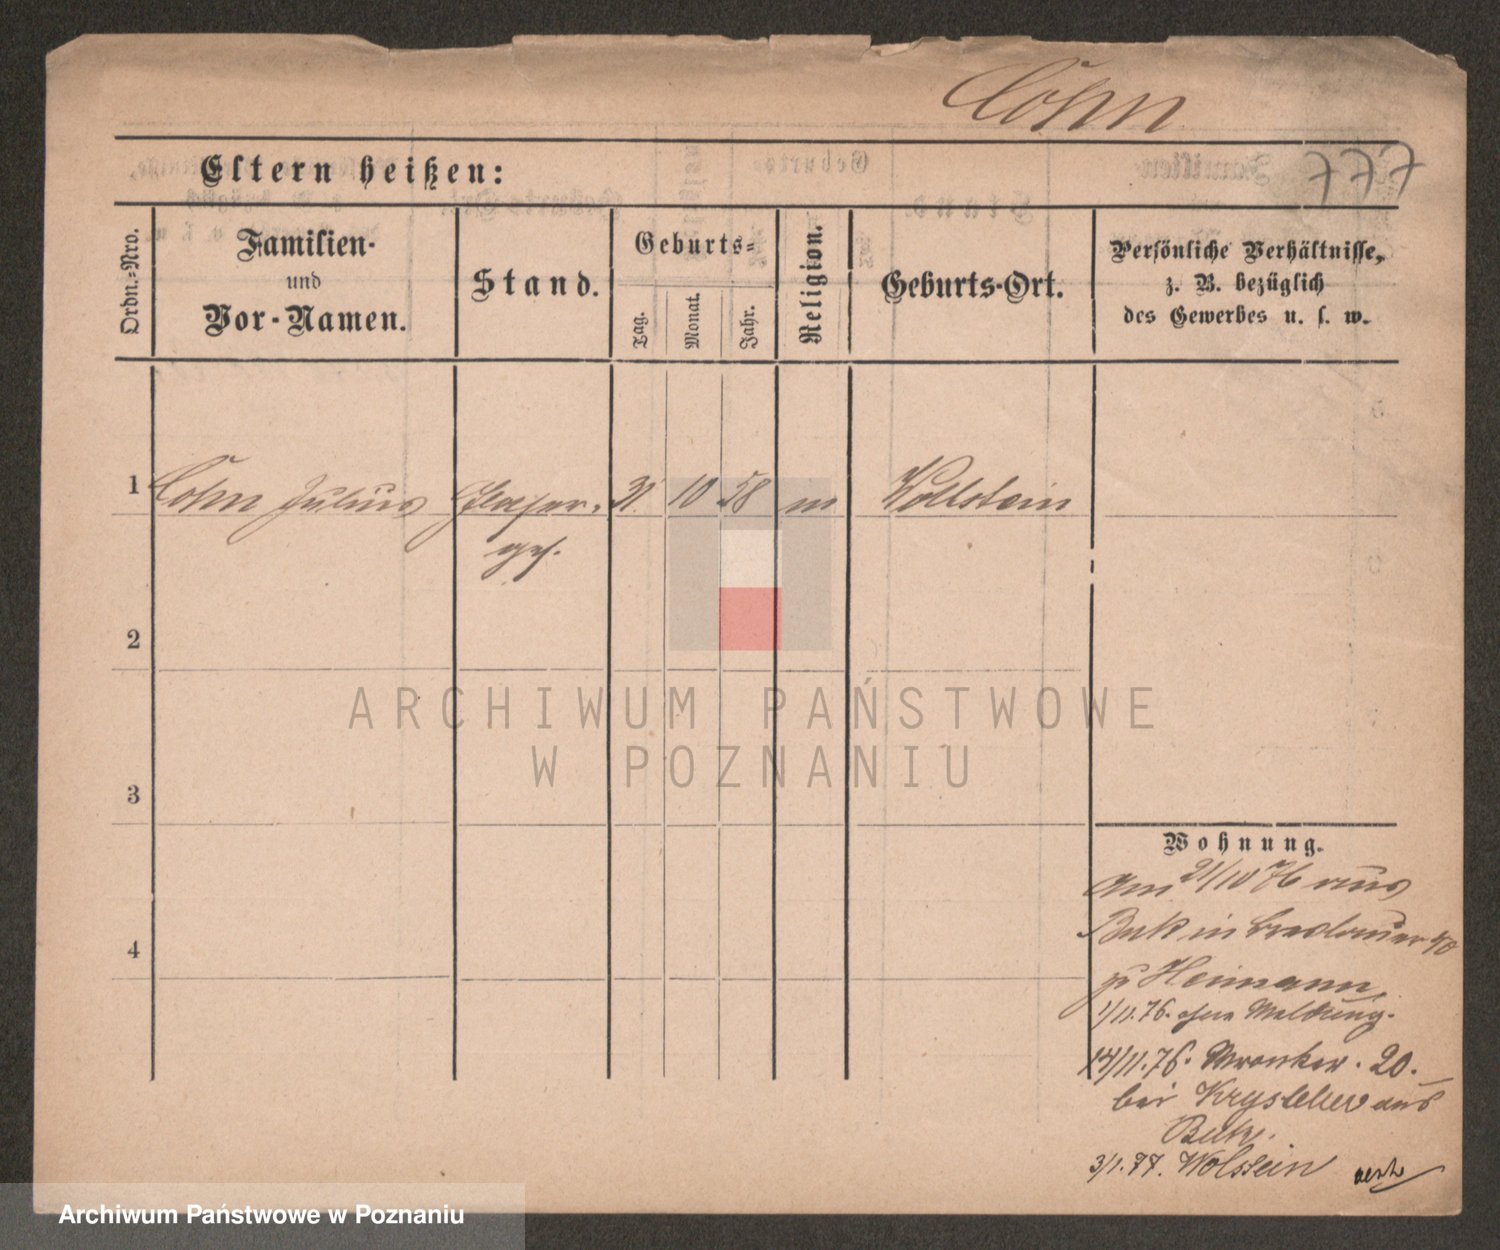 Cohn
777
Eltern heißen:
Ordn.-Nro.
Familien-
und
Vor-Namen.
Stand.
Geburts-
Tag.
Monat.
Jahr.
Religion.
Geburts-Ort.
Persönliche Verhältnisse,
z. B. bezüglich
des Gewerbes u. s. w.
1 Cohn Julius Glaser- 31. 10 58 m Wollstein
ges.
2
3
4
ARCHIWUM PAŃSTWOWE
W POZNANIU
Wohnung.
Am 21/10 76 aus
Buk in Breslauer 40
zu Heimann.
1/11.76. ohne Meldung.
14/11.76. Wronker. 20.
bei Krysteller aus
Buk.
3/1.77. Wolstein
Archiwum Państwowe w Poznaniu